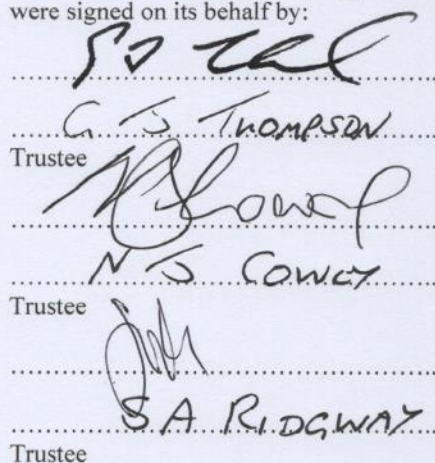 were signed on its behalf by:
G J THOMPSON
Trustee
N J COWLEY
Trustee
S A RIDGWAY
Trustee